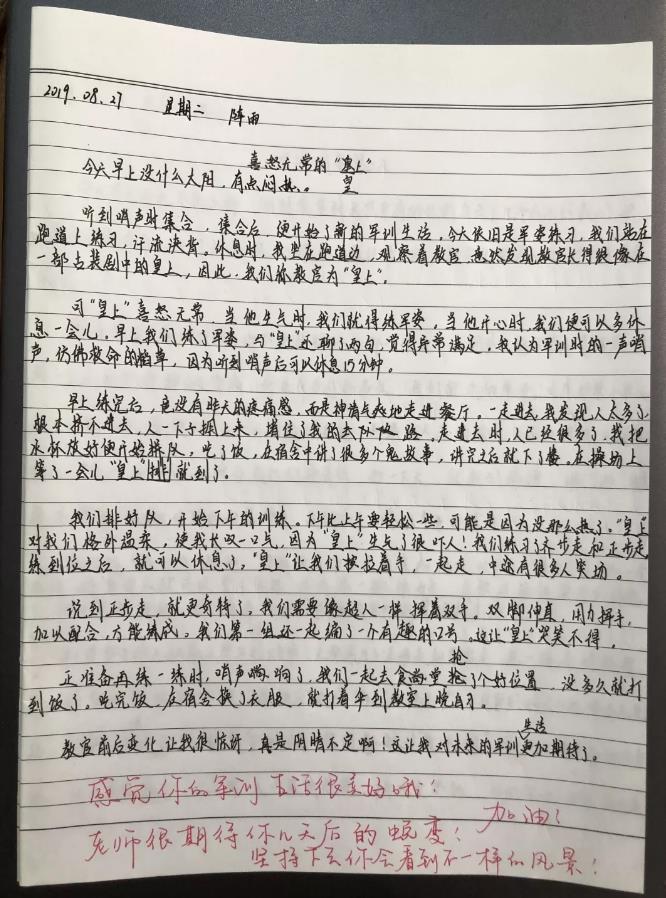 2019.08.27 星期二 阵雨
喜怒无常的"皇上"
皇
今天早上没什么太阳,有点闷热。
听到哨声时集合,集合后,便开始了新的军训生活,今天依旧是军姿练习,我们站在
跑道上练习,汗流浃背。休息时,我坐在跑道边,观察着教官,忽然发现教官长得很像在
一部古装剧中的皇上,因此,我们称教官为"皇上"。
可"皇上"喜怒无常,当他生气时,我们就得练军姿,当他开心时,我们便可以多休
息一会儿。早上我们练了军姿,与"皇上"还聊了两句,觉得异常满足,我认为军训时的一声哨
声,仿佛救命的稻草,因为听到哨声后可以休息15分钟。
早上练完后,竟没有昨天的疼痛感,而是神清气爽地走进餐厅。一走进去,我发现人太多了,
根本挤不进去,人一下子拥上来,堵住了我的去路。走进去时,人已经很多了,我把
水杯放好便开始排队,吃了饭,在宿舍中讲了很多个鬼故事,讲完之后就下了楼。在操场上
等了一会儿"皇上"就到了。
我们排好队,开始下午的训练。下午比上午要轻松一些,可能是因为没那么热了。"皇上"
对我们格外温柔,使我长叹一口气,因为"皇上"生气了很吓人!我们练习了齐步走和正步走,
练到位之后,就可以休息了,"皇上"让我们拉着手,一起走,中途有很多人笑场。
说到正步走,就更奇特了,我们需要像超人一样挥着双手。双脚伸直,用力挥手,
加以配合,方能练成。我们第一组还一起编了一个有趣的口号,这让"皇上"哭笑不得。
抢
正准备再练一练时,哨声响了,我们一起去食堂抢了个好位置,没多久就打
到饭了。吃完饭,在宿舍换了衣服,就打着伞到教室上晚自习。
生活
教官前后变化让我很惊讶,真是阴晴不定啊!这让我对未来的军训更加期待了。
感觉你的军训生活很美好哦!
加油!
老师很期待你几天后的蜕变!
坚持下去你会看到不一样的风景!